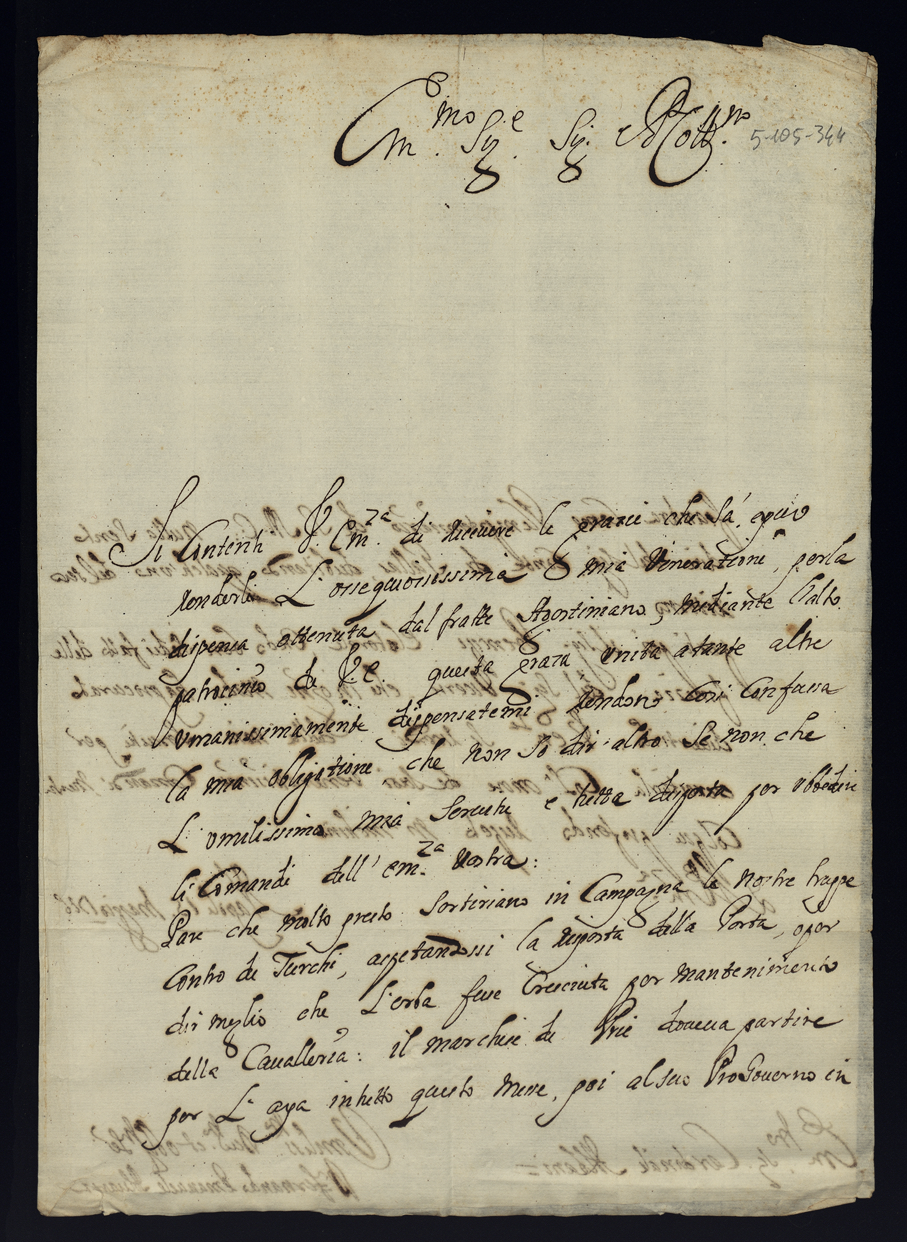 Em.mo Sig.e Sig. P. Coll.mo
5-105-344
Si Contenti V. Em.za di ricevere le grazie che sà, e quivo
renderli L'ossequiosissima mia Veneratione, per la
dispensa ottenuta dal fratte Agostiniano, mediante l'alto
patrocinio di V. E. questa graza unita a tante altre
umanissimamente dispensatemi rendono Cosi Confussa
la mia obligatione che non so dir altro se non che
L'umilissima mia Servitu e tutta disposta per obbedire
li Comandi dell' em.za Vostra:
Pare che molto presto Sortiriano in Campagna le nostre truppe
Contro de Turchi, aspetandossi la risposta della Porta, o per
dir meglio che L'erba fusse Cresciuta per mantenimento
della Cavalleria: il marchese de Prié doveva partire
per L'aya in tutto questo mese, poi al suo ProGoverno in